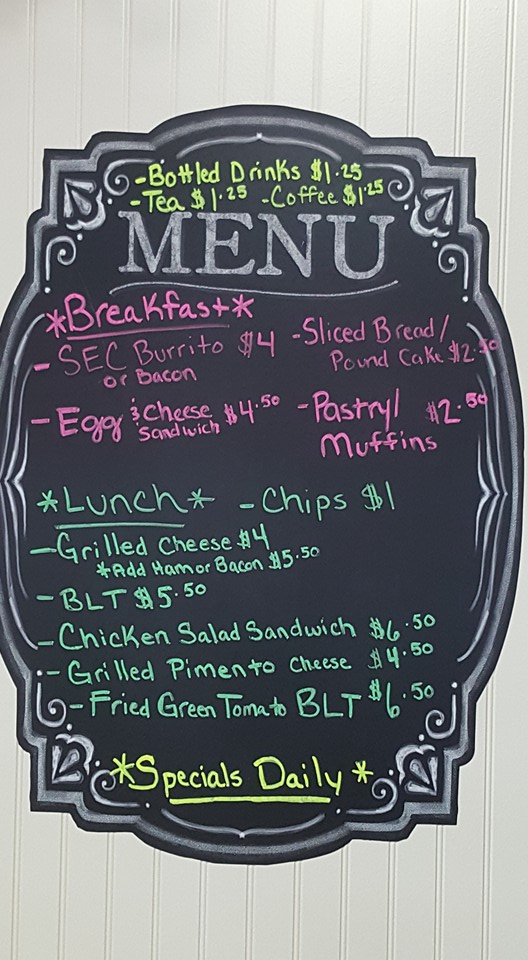 -Bottled Drinks $1.25
-Tea $1.25 -Coffee $1.25
MENU
*Breakfast*
-SEC Burrito $4
or Bacon
-Sliced Bread/
Pound Cake $2.50
-Egg & Cheese $4.50
Sandwich
-Pastry/ $2.50
Muffins
*Lunch* -Chips $1
-Grilled Cheese $4
*Add Ham or Bacon $5.50
-BLT $5.50
-Chicken Salad Sandwich $6.50
-Grilled Pimento Cheese $4.50
-Fried Green Tomato BLT $6.50
*Specials Daily*